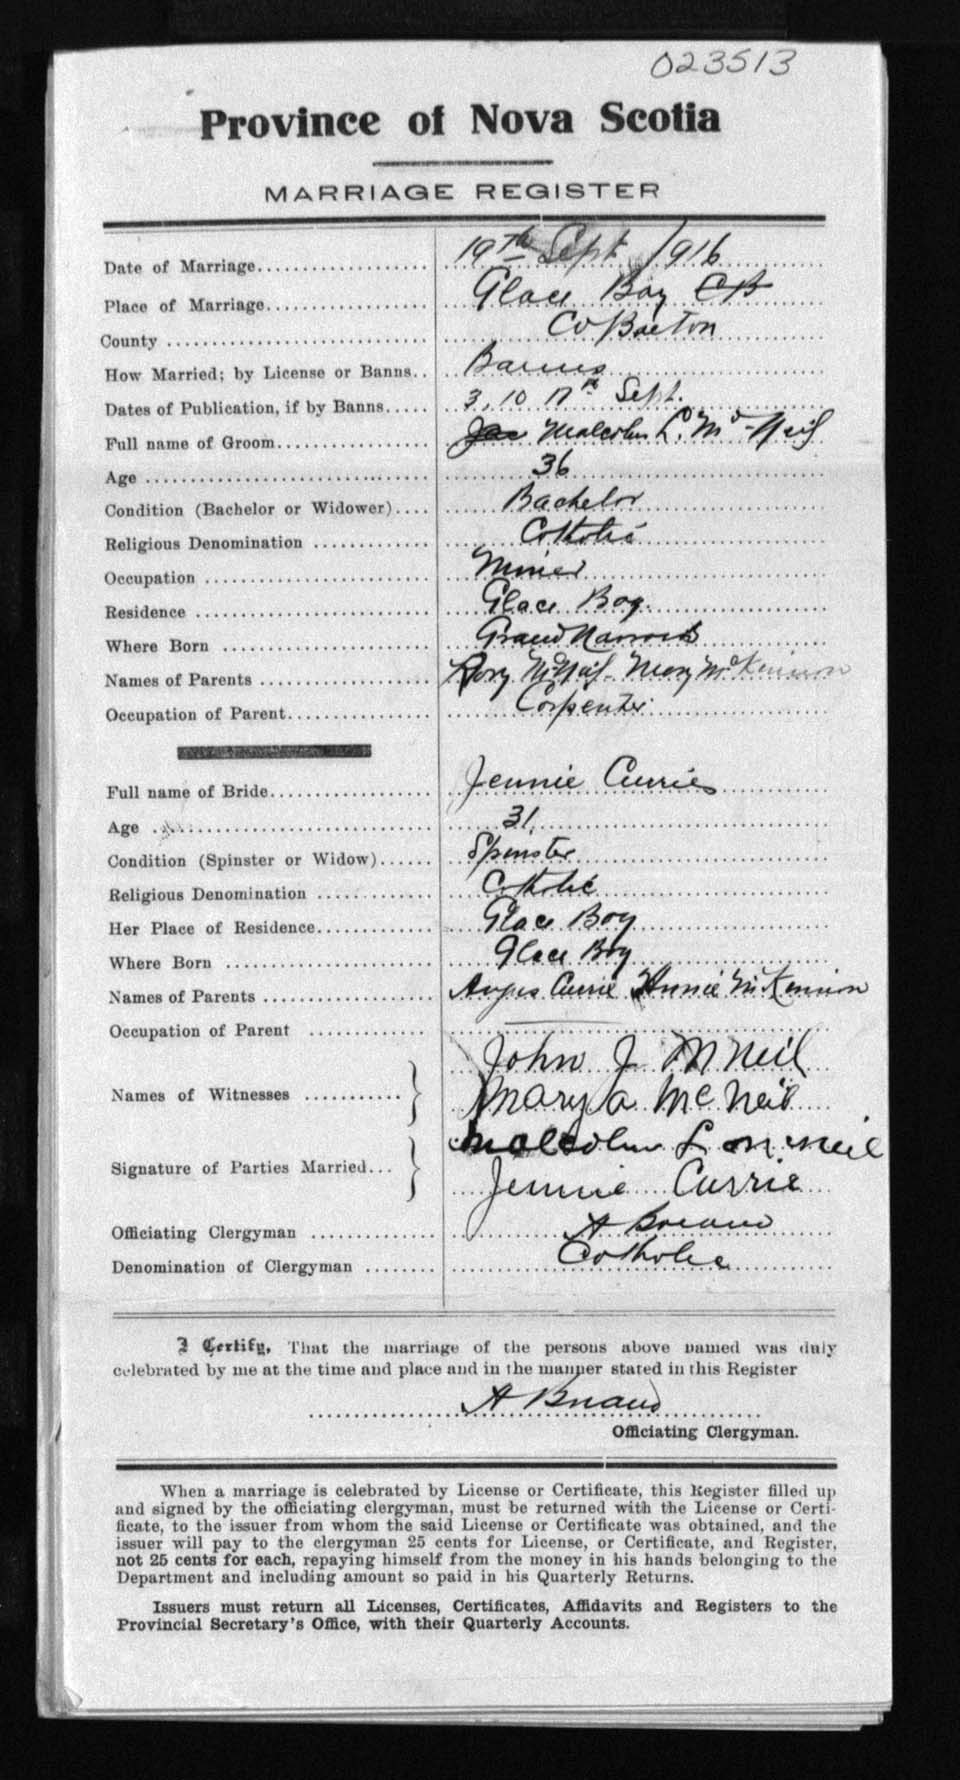 023513
Province of Nova Scotia
MARRIAGE REGISTER
Date of Marriage 19th Sept 1916
Place of Marriage Glace Bay CB
County Co Breton
How Married; by License or Banns Banns
Dates of Publication, if by Banns 3, 10 17th Sept.
Full name of Groom Malcolm L. McNeil
Age 36
Condition (Bachelor or Widower) Bachelor
Religious Denomination Catholic
Occupation Miner
Residence Glace Bay
Where Born Grand Narrows
Names of Parents Rory McNeil - Mary McKinnon
Occupation of Parent Carpenter
Full name of Bride Jennie Currie
Age 31
Condition (Spinster or Widow) Spinster
Religious Denomination Catholic
Her Place of Residence Glace Bay
Where Born Glace Bay
Names of Parents Angus Currie Annie McKinnon
Occupation of Parent
Names of Witnesses John J McNeil
Mary A McNeil
Signature of Parties Married Malcolm L McNeil
Jennie Currie
Officiating Clergyman A Briand
Denomination of Clergyman Catholic
I Certify, That the marriage of the persons above named was duly
celebrated by me at the time and place and in the manner stated in this Register
A Briand
Officiating Clergyman.
When a marriage is celebrated by License or Certificate, this Register filled up
and signed by the officiating clergyman, must be returned with the License or Certi-
ficate, to the issuer from whom the said License or Certificate was obtained, and the
issuer will pay to the clergyman 25 cents for License, or Certificate, and Register,
not 25 cents for each, repaying himself from the money in his hands belonging to the
Department and including amount so paid in his Quarterly Returns.
Issuers must return all Licenses, Certificates, Affidavits and Registers to the
Provincial Secretary's Office, with their Quarterly Accounts.